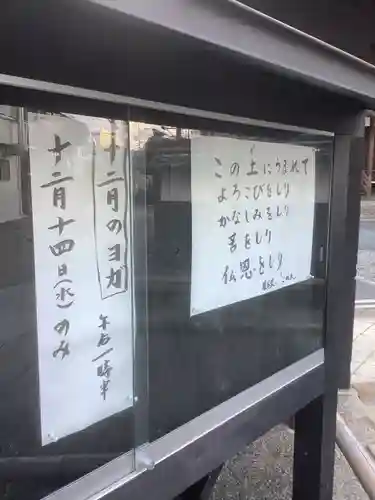 十二月のヨガ
十二月十四日(水)のみ
午后一時半
この土にうまれて
よろこびをしり
かなしみをしり
苦をしり
仏恩をしり